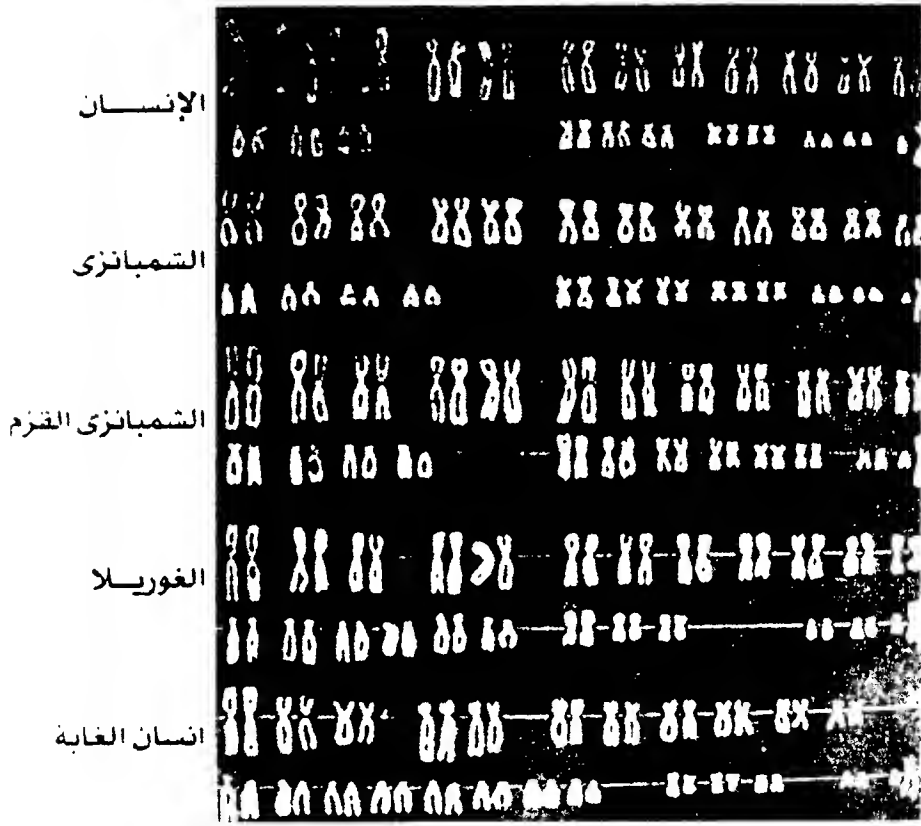 الإنســـان
الشمبانزى
الشمبانزى القزم
الغوريــلا
انسان الغابة